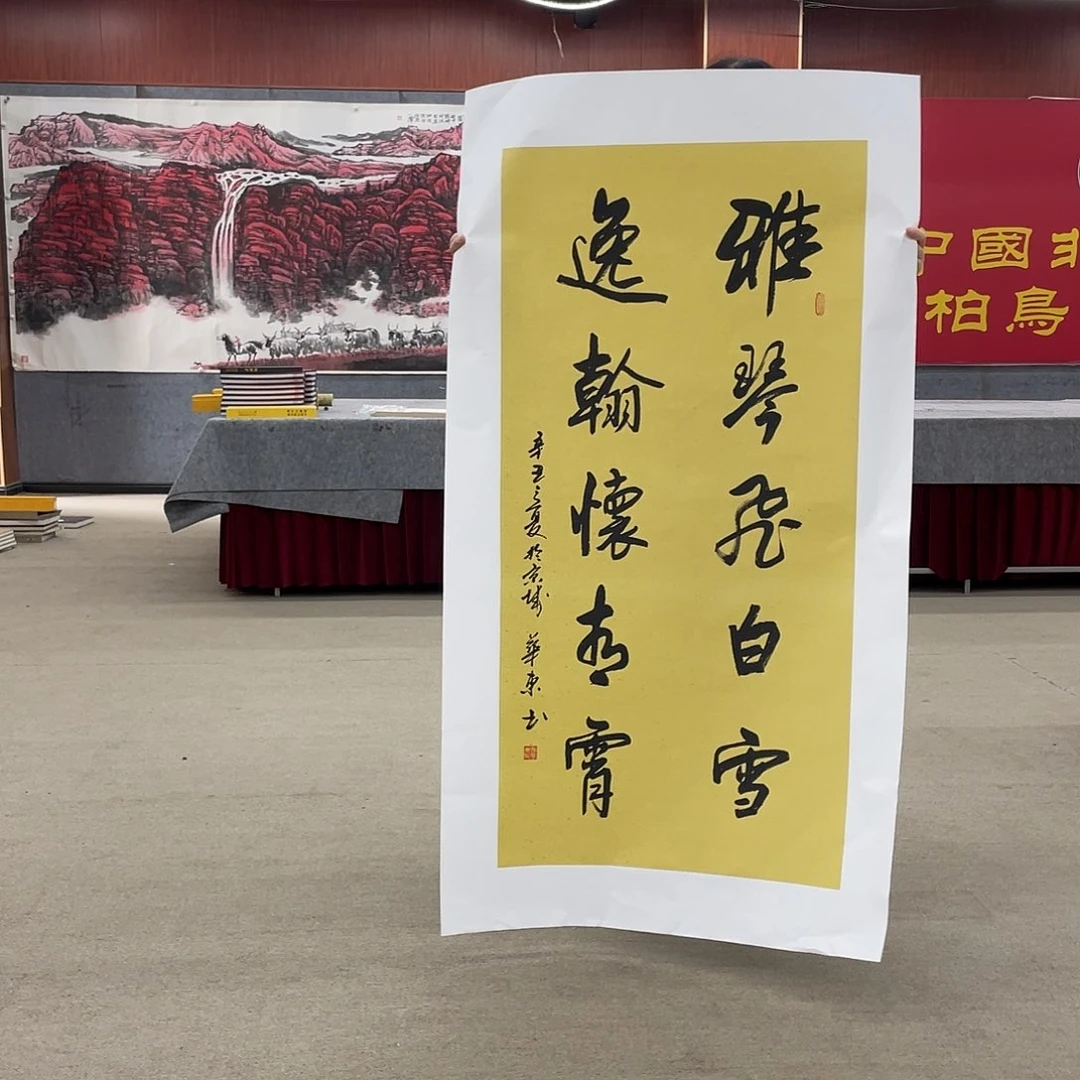 雅琴飛白雪
逸翰懷青霄
辛丑之夏於京城 華東书
中國非
柏鳥